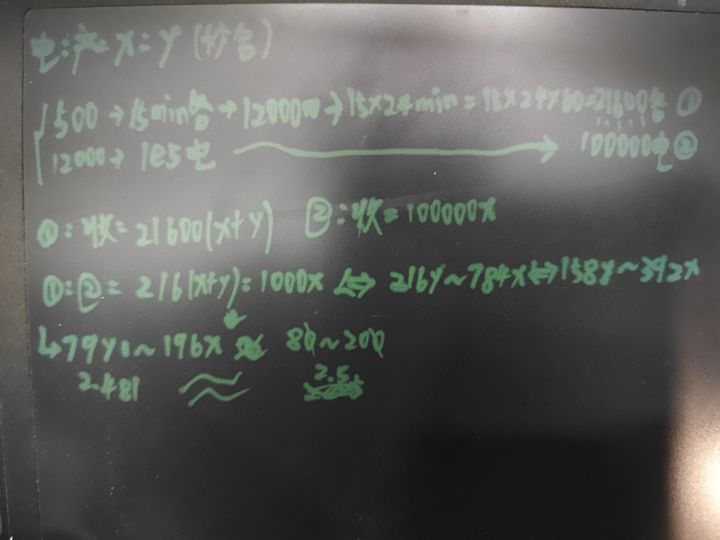 电:产=x=y(秒台)
500→15min台→12000m→15×24min=15×24×60=21600台 ①
12000→1e5电 → 100000电②
①:收=21600(x+y) ②:收=100000x
①:②=216(x+y):1000x⇔216y~784x⇔158y~392x
↳79y~196x 80~200
2.481 ≈ 2.5